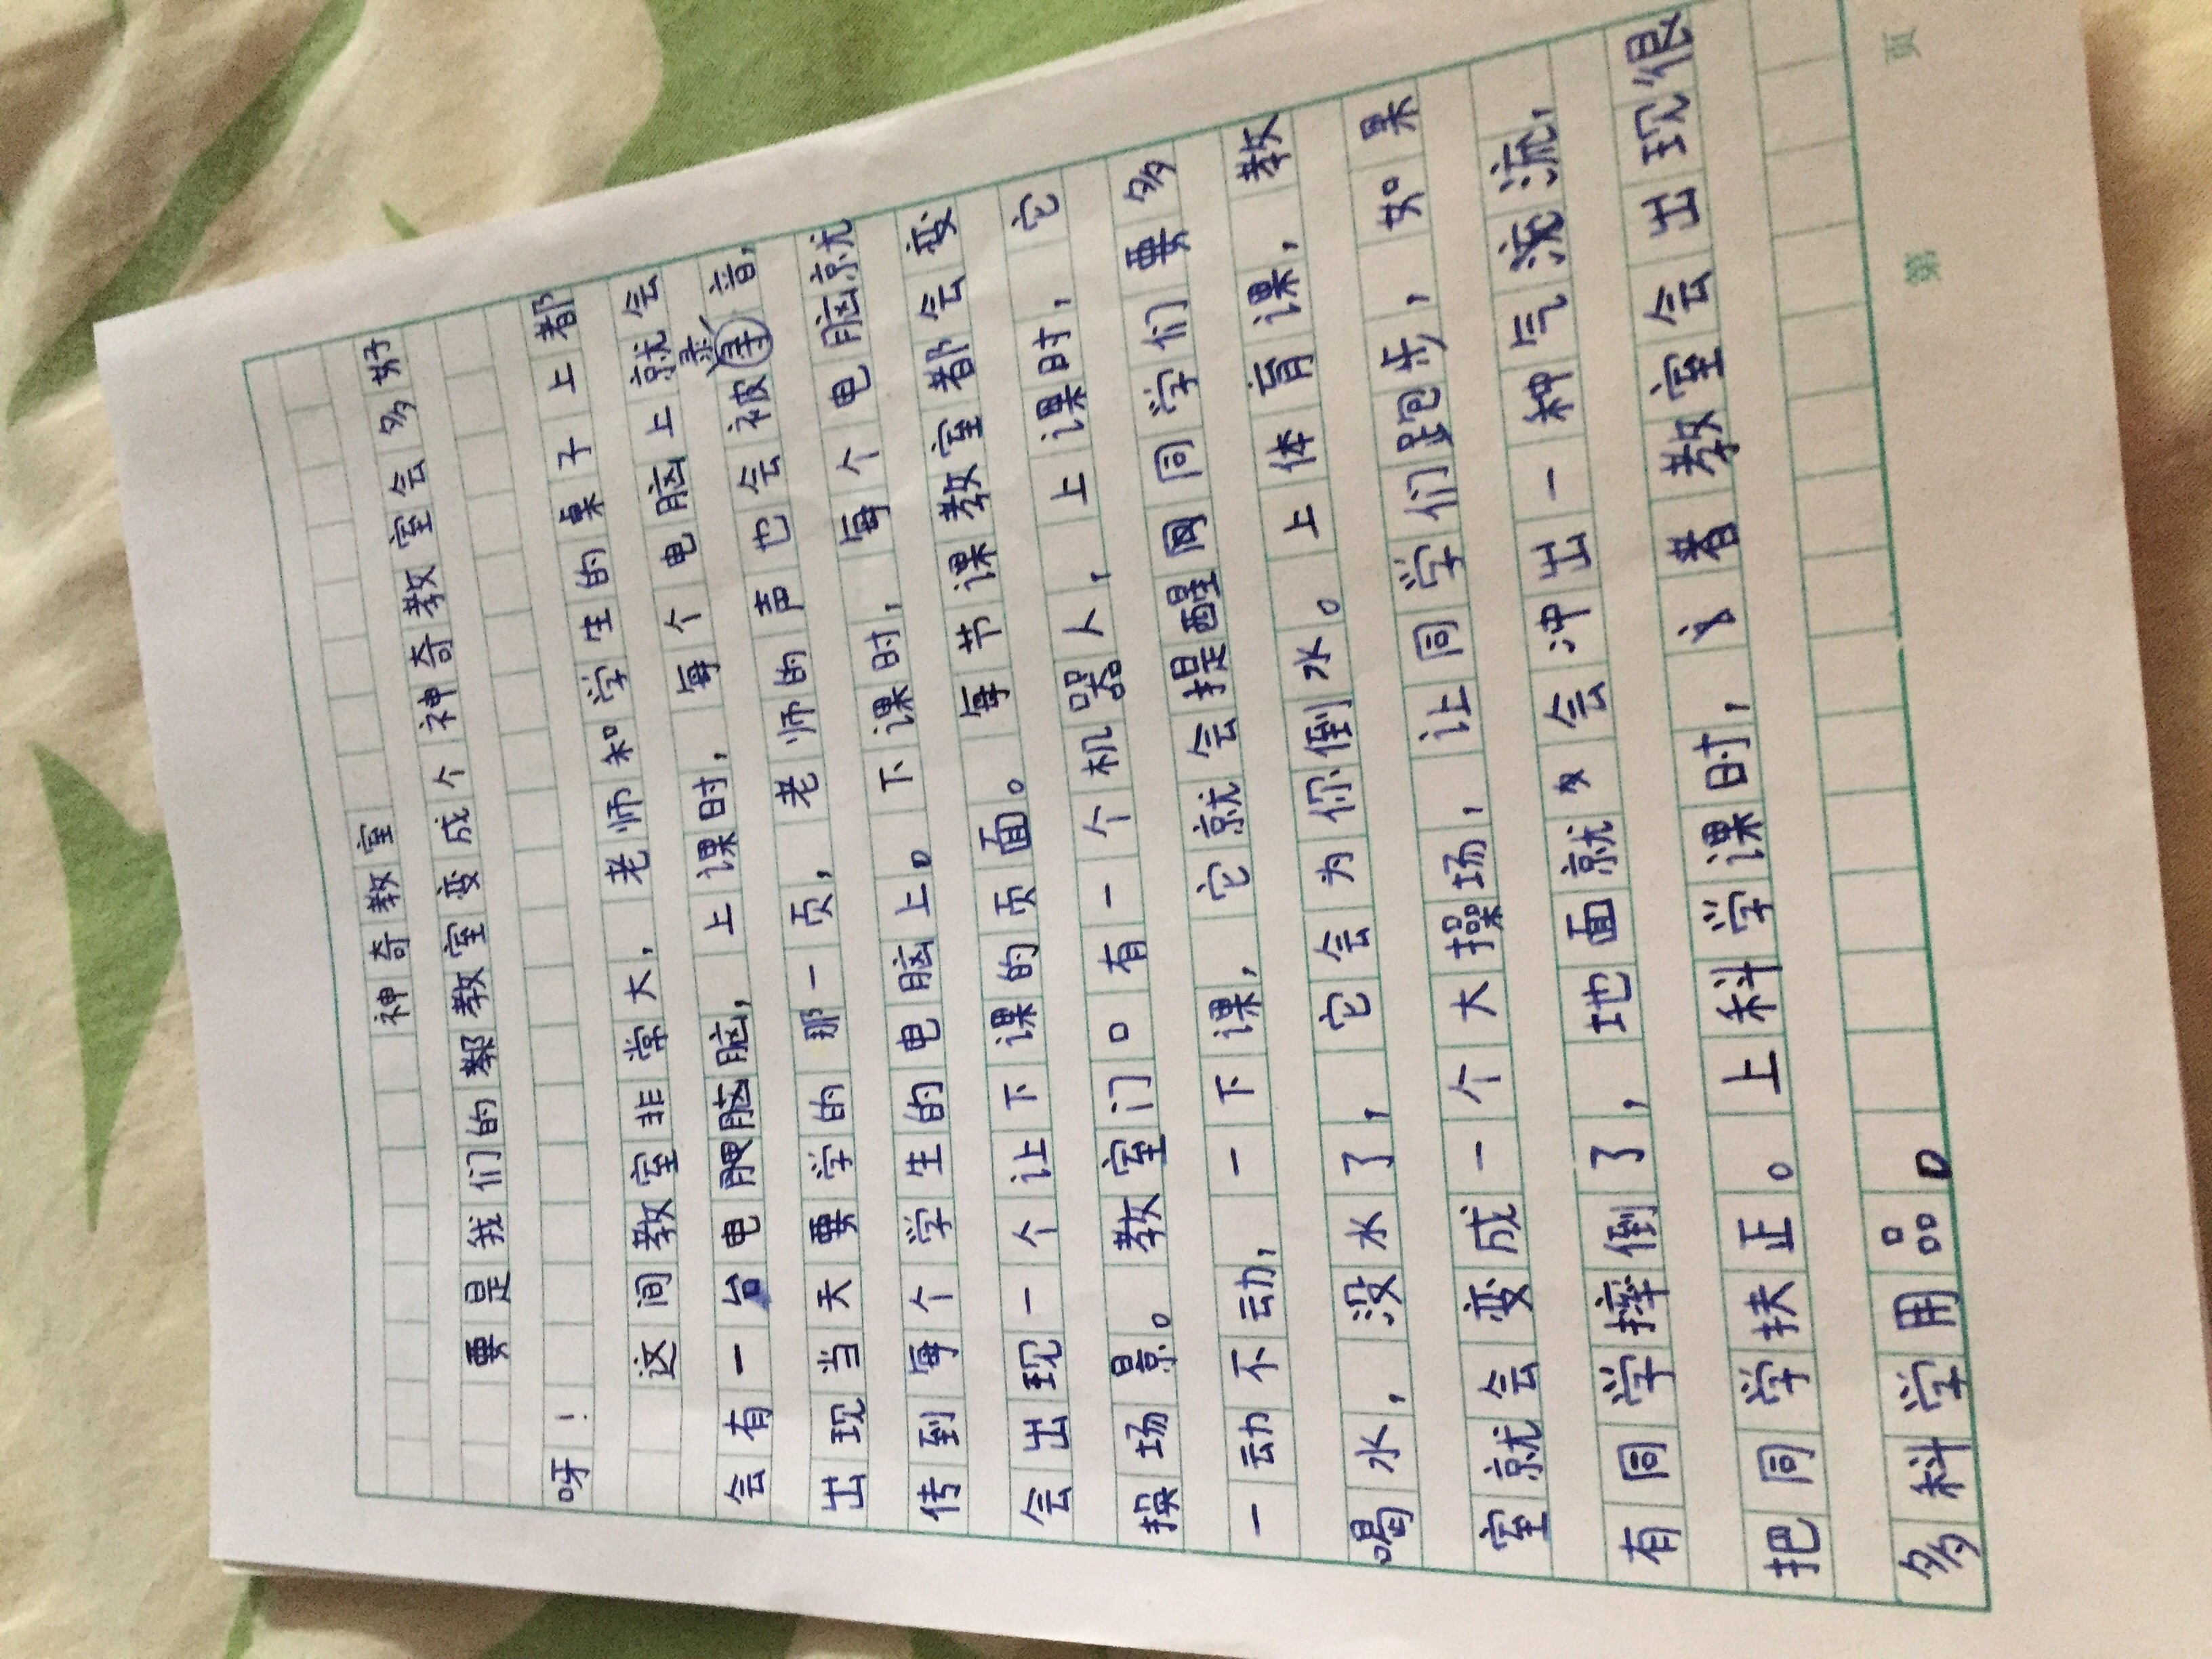 神奇教室
要是我们的教室变成个神奇教室会多好
呀！
这间教室非常大，老师和学生的桌子上都
会有一台电脑，上课时，每个电脑上就会
出现当天要学的那一页，老师的声也会被录音，
传到每个学生的电脑上。下课时，每个电脑就
会出现一个让下课的页面。每节课教室都会变
换场景。教室门口有一个机器人，上课时，它
一动不动，一下课，它就会提醒同学们要多
喝水，没水了，它会为你倒水。上体育课，教
室就会变成一个大操场，让同学们跑步，如果
有同学摔倒了，地面就会冲出一种气流，
把同学扶正。上科学课时，教室会出现很
多科学用品。
第 页